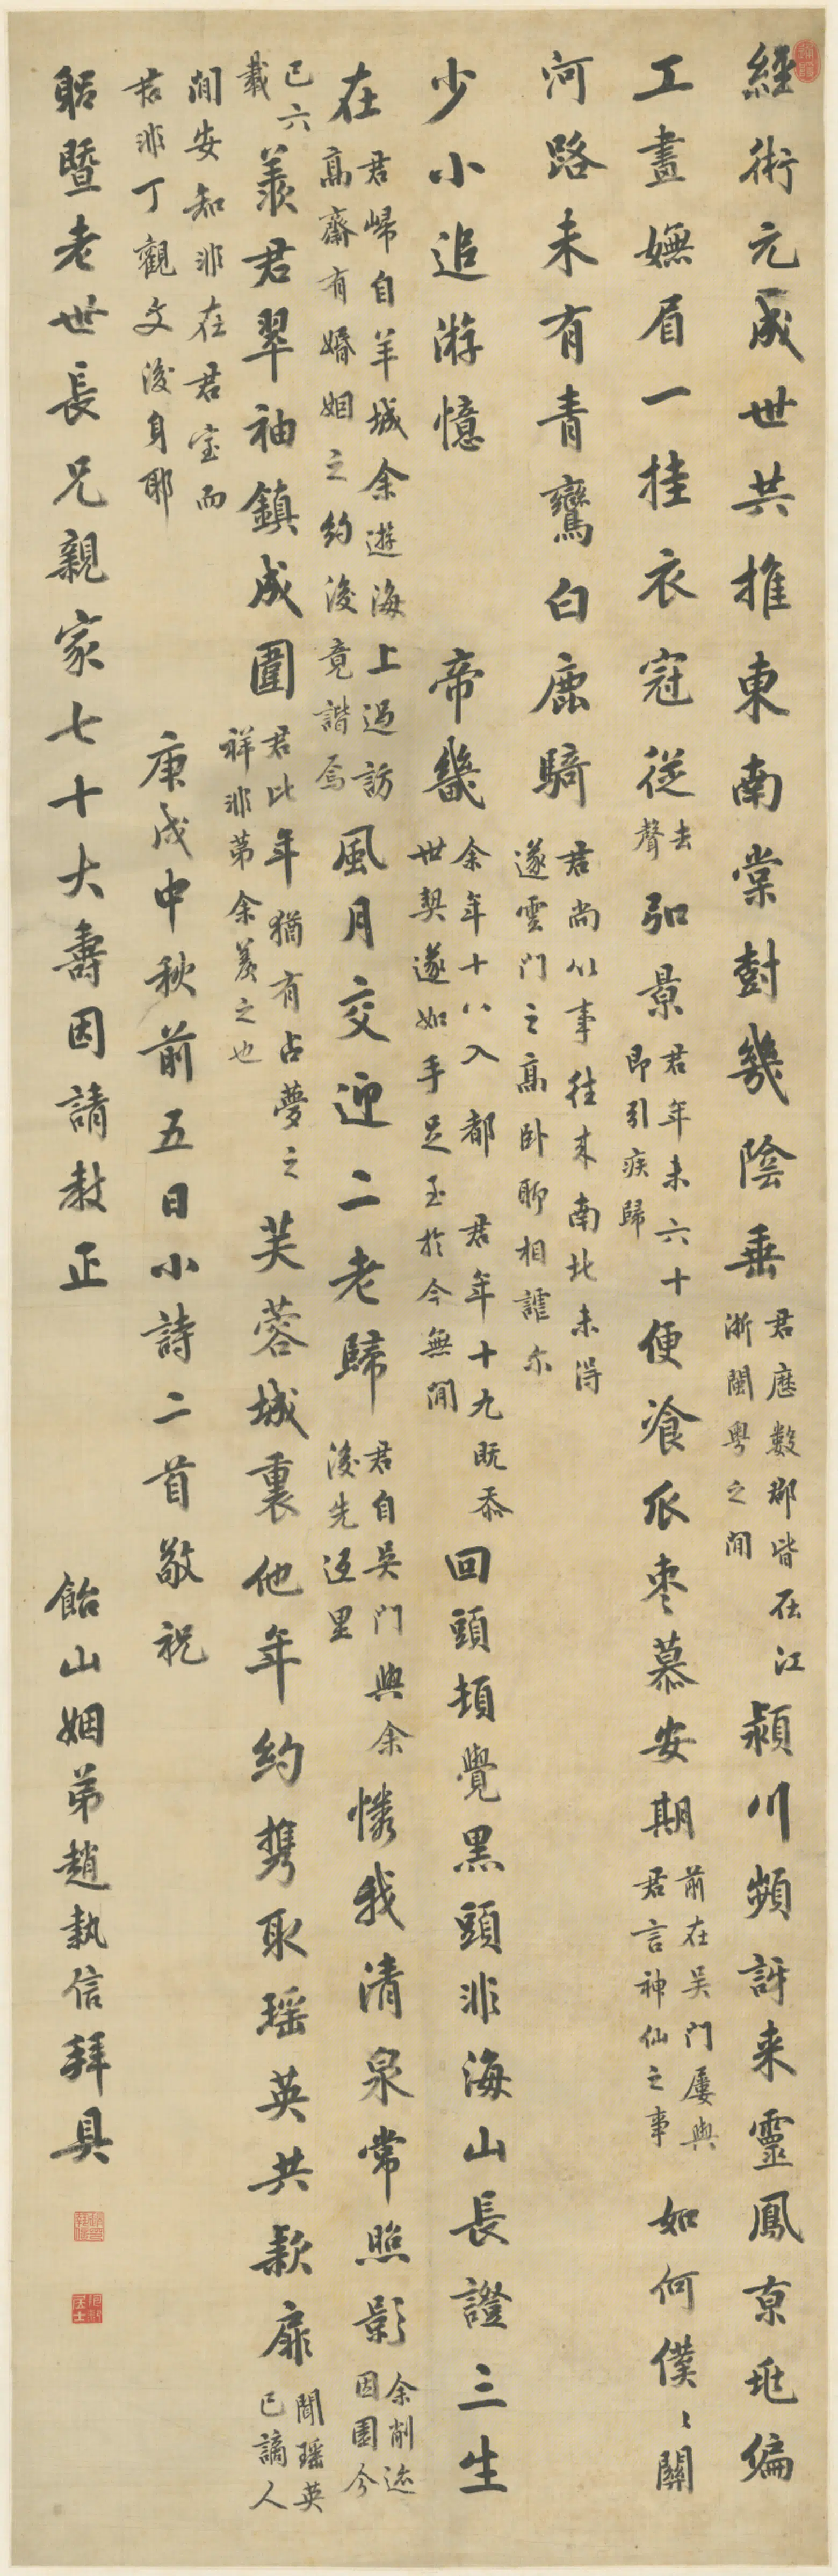 經術元成世共推東南棠樹幾陰垂君歷數郡皆在江浙閩粵之間潁川頻訝来靈鳳京兆偏
工畫嫵眉一挂衣冠從去聲弘景君年未六十即引疾歸便飡瓜棗慕安期前在吴门屢與君言神仙之事如何僕僕關
河路未有青鸞白鹿騎君尚以事往来南北未得遂雲门之高卧聊相謔尔
少小追游憶帝畿余年十八入都君年十九既忝世契遂如手足至於今無間回頭頓覺黑頭非海山長證三生
在君歸自羊城余遊海上過訪高齋有婚姻之約後竟諧焉風月交迎二老歸君自吴门與余後先返里憐我清泉常照影余削迹因園今
已六載羨君翠袖鎮成圍君比年猶有占夢之祥非苐余羨之也芙蓉城裏他年約携取瑶英共款扉聞瑶英已謫人
間安知非在君室而君非丁觀文後身耶
庚戌中秋前五日小詩二首敬祝
躳暨老世長兄親家七十大壽因請教正
飴山姻弟趙執信拜具